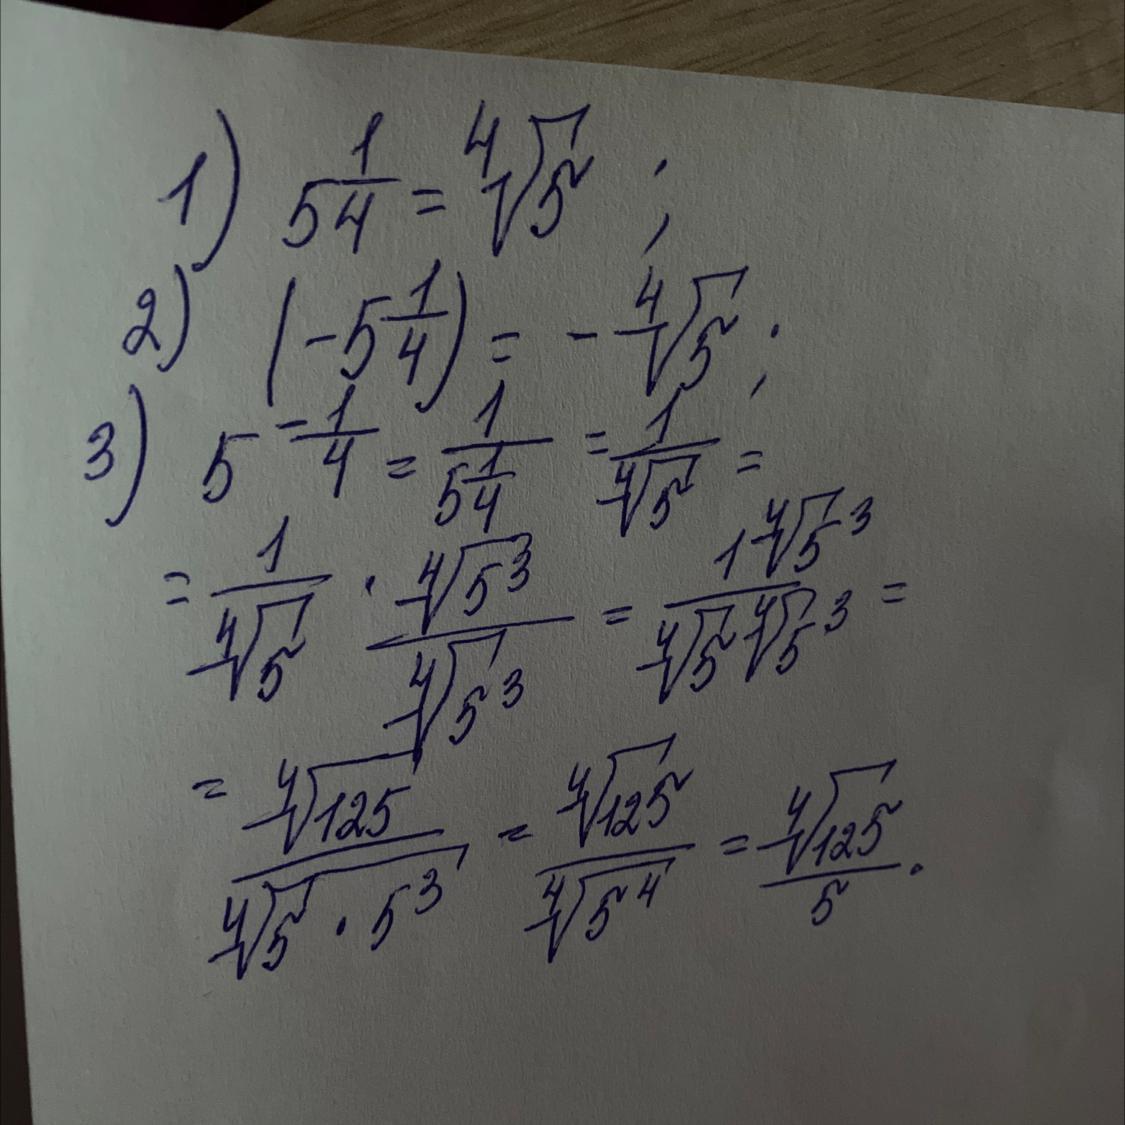 1) 5^{\frac{1}{4}} = \sqrt[4]{5} ;
2) (-5^{\frac{1}{4}}) = -\sqrt[4]{5} ;
3) 5^{-\frac{1}{4}} = \frac{1}{5^{\frac{1}{4}}} = \frac{1}{\sqrt[4]{5}} =
= \frac{1}{\sqrt[4]{5}} \cdot \frac{\sqrt[4]{5^3}}{\sqrt[4]{5^3}} = \frac{1\sqrt[4]{5^3}}{\sqrt[4]{5}\sqrt[4]{5^3}} =
= \frac{\sqrt[4]{125}}{\sqrt[4]{5 \cdot 5^3}} = \frac{\sqrt[4]{125}}{\sqrt[4]{5^4}} = \frac{\sqrt[4]{125}}{5}.